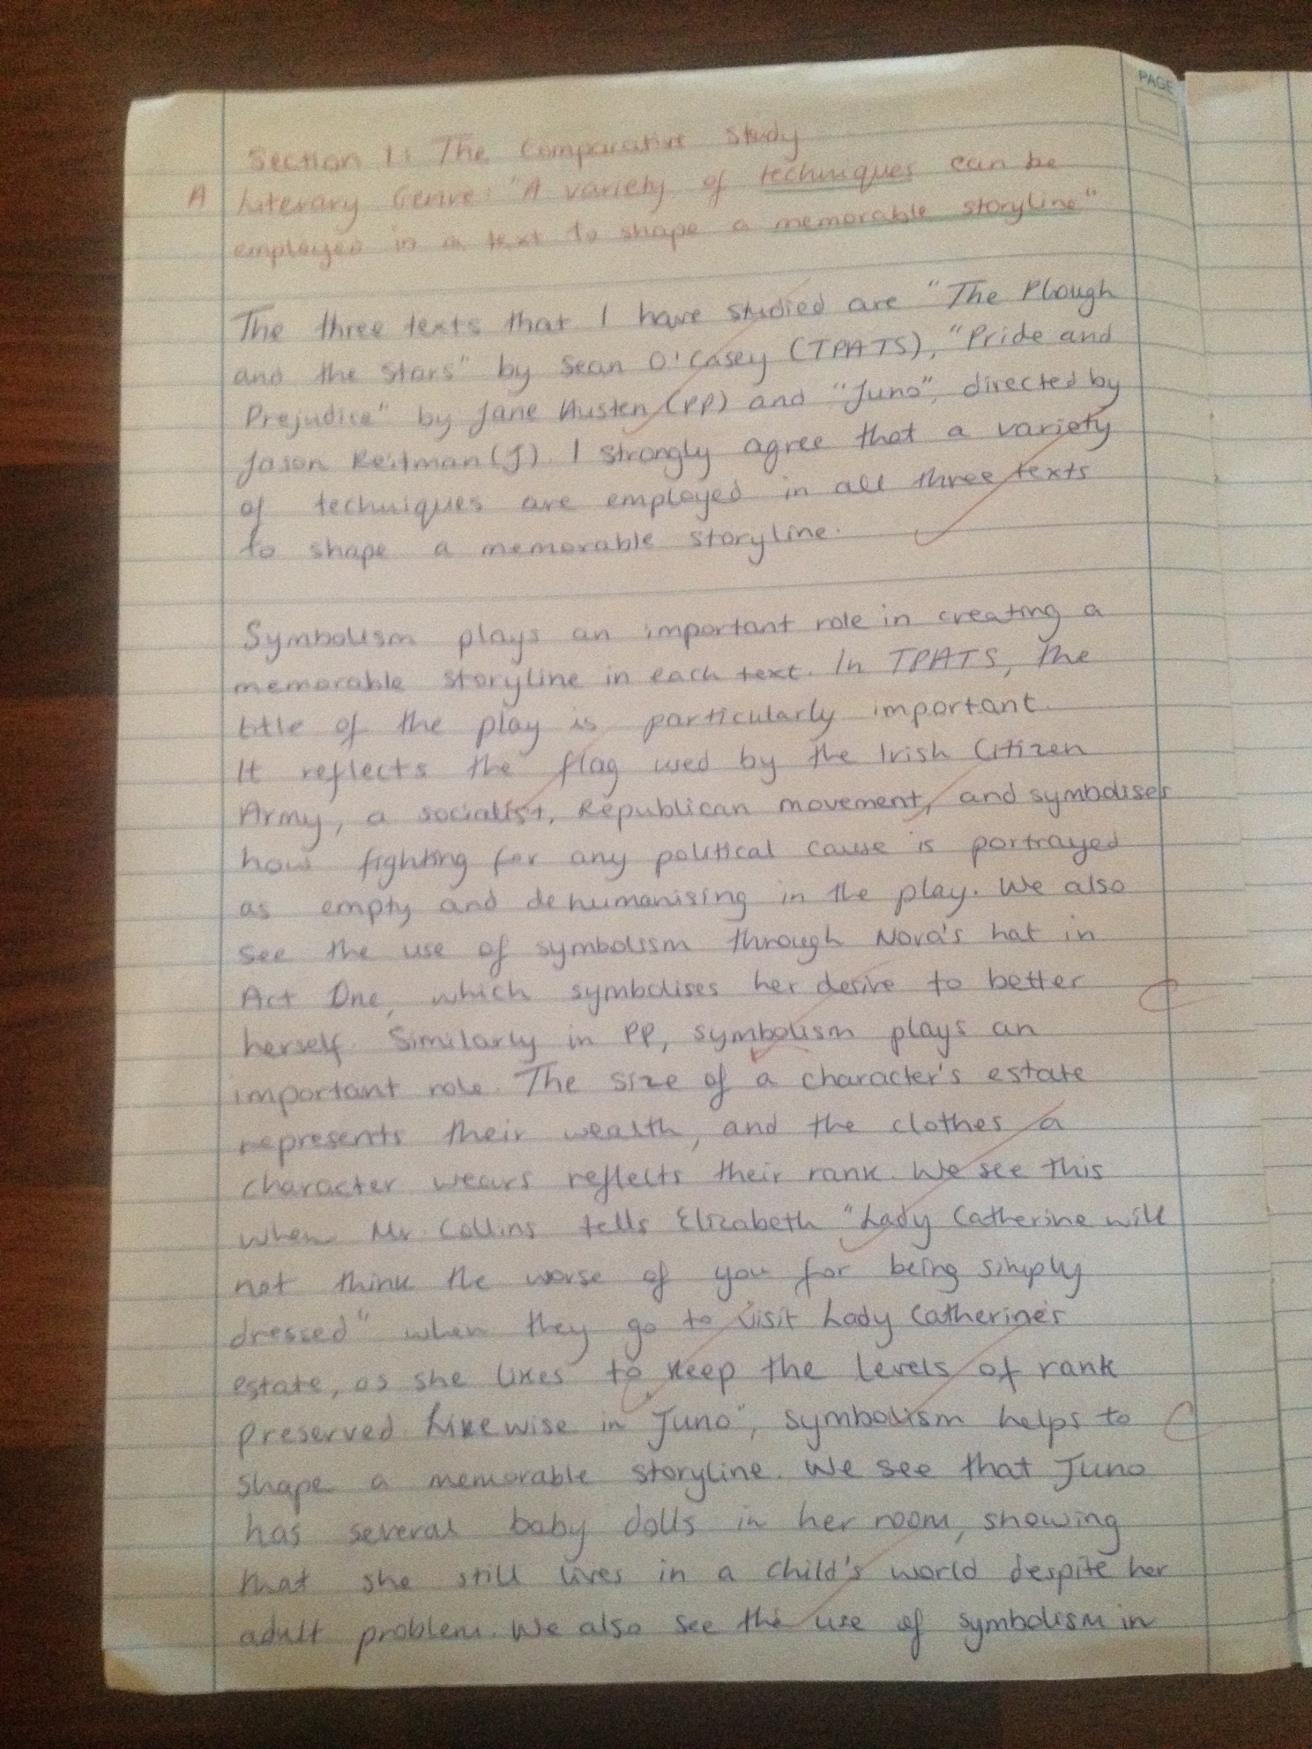 PAGE
Section 1: The Comparative Study
A Literary Genre: "A variety of techniques can be
employed in a text to shape a memorable storyline"
The three texts that I have studied are "The Plough
and the Stars" by Sean O'Casey (TPATS), "Pride and
Prejudice" by Jane Austen (PP) and "Juno", directed by
Jason Reitman (J). I strongly agree that a variety
of techniques are employed in all three texts
to shape a memorable storyline.
Symbolism plays an important role in creating a
memorable storyline in each text. In TPATS, the
title of the play is particularly important.
It reflects the flag used by the Irish Citizen
Army, a socialist, Republican movement, and symbolises
how fighting for any political cause is portrayed
as empty and dehumanising in the play. We also
see the use of symbolism through Nora's hat in
Act One, which symbolises her desire to better
C
herself. Similarly in PP, symbolism plays an
important role. The size of a character's estate
represents their wealth, and the clothes a
character wears reflects their rank. We see this
when Mr Collins tells Elizabeth "Lady Catherine will
not think the worse of you for being simply
dressed" when they go to visit Lady Catherine's
estate, as she likes to keep the levels of rank
preserved. Likewise in "Juno", symbolism helps to
C
shape a memorable storyline. We see that Juno
has several baby dolls in her room, showing
that she still lives in a child's world despite her
adult problem. We also see the use of symbolism in